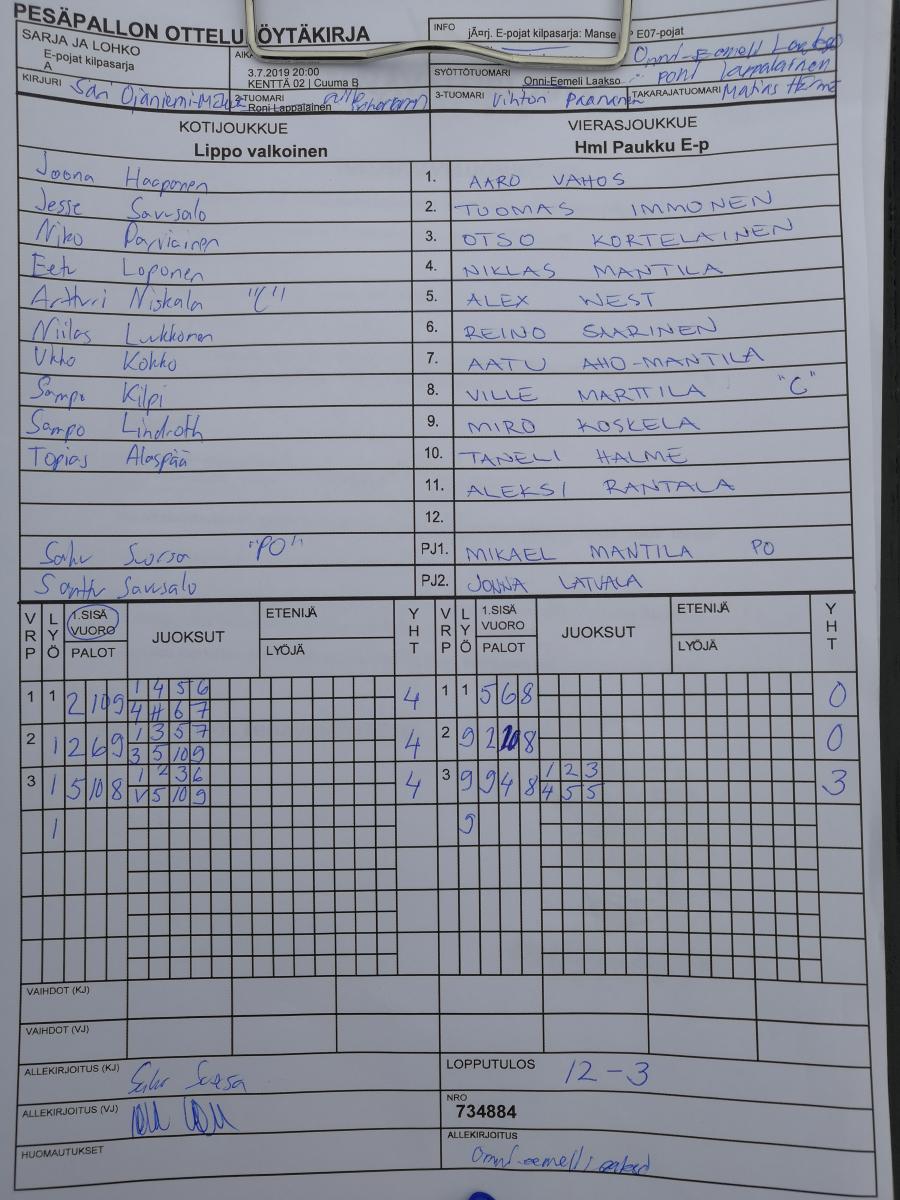 PESÄPALLON OTTELU ÖYTÄKIRJA
SARJA JA LOHKO
E-pojat kilpasarja
A
AIKA
3.7.2019 20:00
KENTTÄ 02 | Cuuma B
INFO
jÄnrj. E-pojat kilpasarja: Manse P E07-pojat
SYÖTTÖTUOMARI
Onni-Eemeli Laakso
Onni-Eemeli Laakso
Roni Lappalainen
KIRJURI
2-TUOMARI
Roni Lappalainen
3-TUOMARI
Vihtori Paananen
TAKARAJATUOMARI
Matias Herme
KOTIJOUKKUE
Lippo valkoinen
VIERASJOUKKUE
Hml Paukku E-p
Joona Haaponen 1. AARO VAHOS
Jesse Savusalo 2. TUOMAS IMMONEN
Niko Parviainen 3. OTSO KORTELAINEN
Eetu Loponen 4. NIKLAS MANTILA
Artturi Niskala "C" 5. ALEX WEST
Niilas Lukkonen 6. REINO SAARINEN
Ukko Kokko 7. AATU AHO-MANTILA
Sampo Kilpi 8. VILLE MARTTILA "C"
Sampo Lindroth 9. MIRO KOSKELA
Topias Alaspää 10. TANELI HALME
11. ALEKSI RANTALA
12.
"PO" PJ1. MIKAEL MANTILA PO
Santtu Savusalo PJ2. JONNA LATVALA
VRP LYÖ 1.SISÄ VUORO PALOT JUOKSUT ETENIJÄ LYÖJÄ YHT VRP LYÖ 1.SISÄ VUORO PALOT JUOKSUT ETENIJÄ LYÖJÄ YHT
1 1 2 10 9 1 4 5 6 4 1 1 5 6 8 0
4 H 6 7
2 1 2 6 9 1 3 5 7 4 2 9 2 10 8 0
3 5 10 9
3 1 5 10 8 1 2 3 6 4 3 9 9 4 8 1 2 3 3
V 5 10 9 4 5 5
1 9
VAIHDOT (KJ)
VAIHDOT (VJ)
ALLEKIRJOITUS (KJ)
LOPPUTULOS 12-3
ALLEKIRJOITUS (VJ)
NRO
734884
HUOMAUTUKSET
ALLEKIRJOITUS